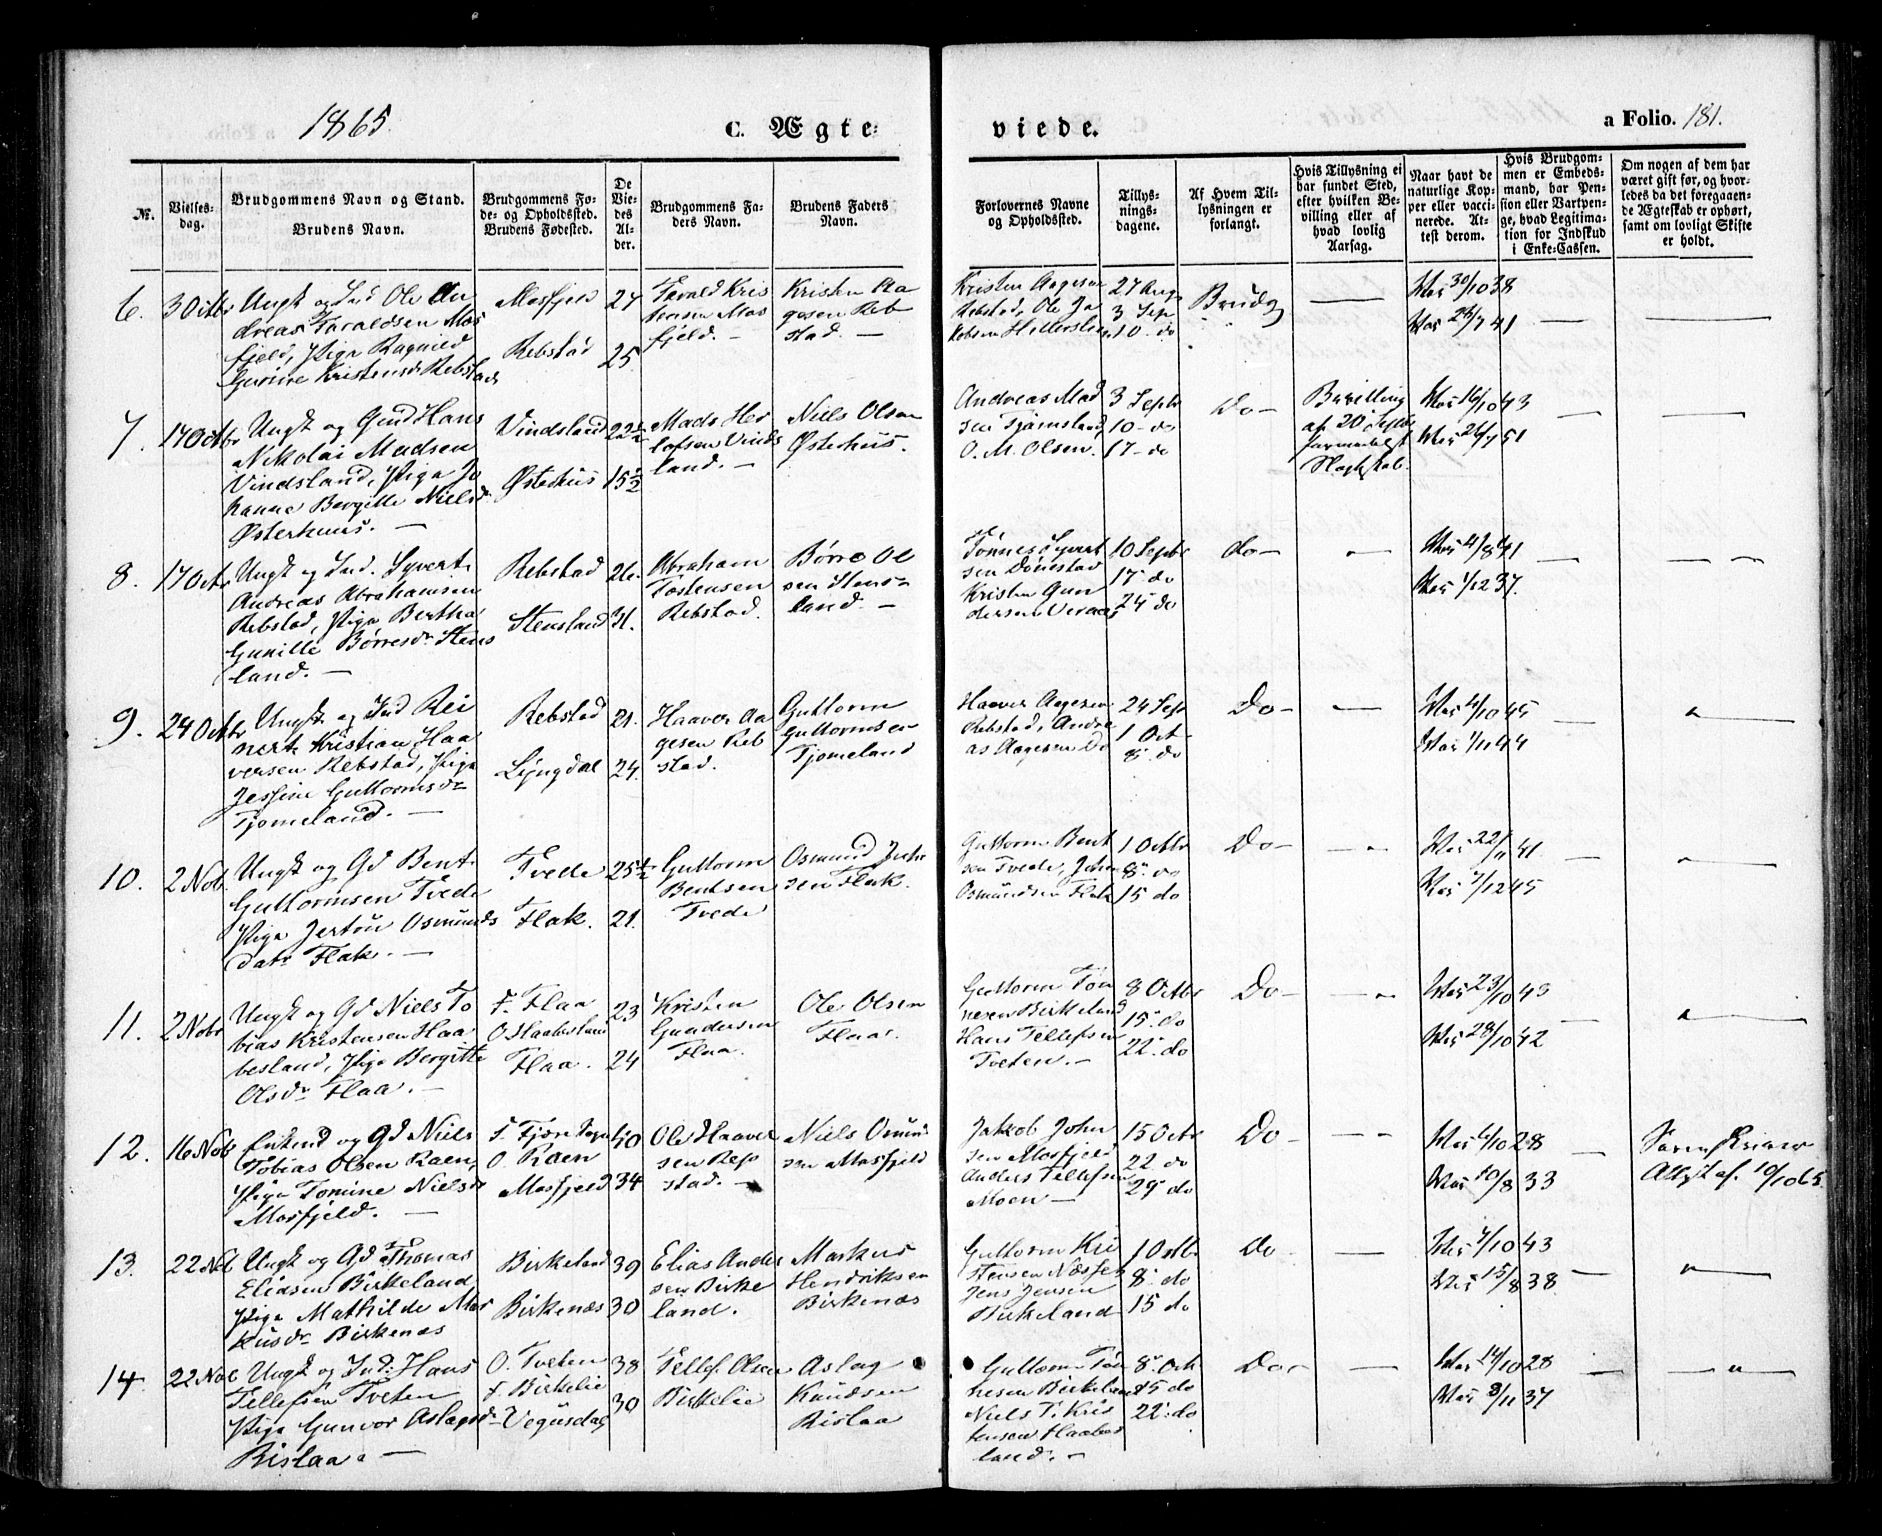 1865.
C. Ægte=
viede.
a Folio. 181.
No.
Vielses-
dag.
Brudgommens Navn og Stand.
Brudens Navn.
Brudgommens Fø-
de- og Opholdssted.
Brudens Fødested.
De
Vie-
des
Al-
der.
Brudgommens Fa-
ders Navn.
Brudens Faders
Navn.
Forlovernes Navne
og Opholdssted.
Tillys-
nings-
dagene.
Af Hvem Til-
lysningen er
forlangt.
Hvis Tillysning ei
har fundet Sted,
efter hvilken Be-
villing eller af
hvad lovlig
Aarsag.
Naar havt de
naturlige Kop-
per eller vacci-
nerede. At-
test derom.
Hvis Brudgom-
men er Embeds-
mand, har Pen-
sion eller Vartpen-
ge, hvad Legitima-
tion for Indskud
i Enke-Cassen.
Om nogen af dem har
været gift før, og hvor-
ledes da det foregaaen-
de Ægteskab er ophørt,
samt om lovligt Skifte
er holdt.
6. 3 Octbr
Ungk og Ind Ole An
dreas Taraldsen Mos
fjeld, Pige Ragnild
Gurine Kristensd Rebstad
Mosfjeld 27
Rebstad 25
Tarald Kris
tensen Mos
fjeld. —
Kristen Aa
gesen Reb
stad. —
Kristen Aagesen
Rebstad, Ole Ja
kobsen
27 Aug
3 Sep
10 do
Brudg
Vac 30/10 38
Vac 26/7 41
7. 17 Octbr
Ungk og Gmd Hans
Nikolai Madsen
Vindsland, Pige Jo
hanne Bergitte Nielsd
Østerhuus. —
Vindsland 22½
Østerhus 15½
Mads Her
lofsen Vinds
land. —
Niels Olsen
Østerhus.
Andreas Mad
sen Tjømsland,
O. M. Olsen.
3 Septr
10 do
17 do
Do —
Bevilling
af 20 Septbr
Vac 16/10 43
Vac 26/7 51
8. 17 Octr
Ungk og Ind. Syvert
Andreas Abrahamsen
Rebstad, Pige Bertha
Gunille Børresdr Stens
land. —
Rebstad 26.
Stensland 31.
Abraham
Tostensen
Rebstad.
Børre Ol
sen Stens-
land. —
Tønnes Syvert
sen Dønestad
Kristen Gun
dersen Veraas
10 Septbr
17 do
24 do
do —
Vac 4/8 41
Vac 1/12 37.
9. 24 Octbr
Ungk og Ind Rei
nert Kristian Haa
versen Rebstad, Pige
Jessine Guttormsdr
Tjomeland. —
Rebstad 21.
Lyngdal 24.
Haaver Aa
gesen Reb
stad.
Guttorm
Guttormsen
Tjomeland
Haaver Aagesen
Rebstad, Andre
as Aagesen Do
24 Sepr
1 Oct
8 do
Do —
Vac 4/10 45
Vac 1/11 44
10. 2 Nob.
Ungk og Gd Bent
Guttormsen Tvede
Pige Jertru Osmunds
datr Flak. —
Tvede 25½
Flak. 21.
Guttorm
Bentsen
Tvede
Osmund Jens
sen Flak.
Guttorm Bent
sen Tvede, John
Osmundsen Flak
1 Octbr
8 do
15 do
Do —
Vac 22/11 41.
Vac 7/12 45
11. 2 Nobr
Ungk og Gd Niels To
bias Kristensen Haa
besland, Pige Bergitte
Olsdr Flaa. —
F. Flaa 23
O Haabesland
Flaa. 24
Kristen
Gundersen
Flaa.
Ole Olsen
Flaa.
Guttorm Tøn
nesen Birkeland
Hans Tellefsen
Tveten. —
8 Octbr
15 do
22 do
Do —
Vac 23/10 43
Vac 28/10 42
12. 16 Nob
Enkmd og Gd Niels
Tobias Olsen Raen,
Pige Tomine Nielsd
Mosfjeld. —
F. Fjære Sogn 40
O. Raen
Mosfjeld 34
Ole Haaver
sen Reb
stad. —
Niels Osmund
sen Mosfjeld
Jakob John
sen Mosfjeld
Anders Tellefsen
Moen —
15 Octbr
22 do
29 do
Do —
Vac 6/10 28
Vac 10/8 33
Sorenskriver
Attest af. 19/10 65.
13. 22 Nob
Ungk og Gd Thomas
Eliasen Birkeland
Pige Mathilde Mar
kusdr Birkenæs
Birkeland 39
Birkenæs 30
Elias Ander
sen Birke
land.
Markus
Hendriksen
Birkenæs
Guttorm Kri
stensen
Jens Jensen
Birkeland
1 Octbr
8 do
15 do
Do
Vac 4/10 43
Vac 15/8 38.
14. 22 Nob
Ungk og Ind: Hans
Tellefsen Tveten
Pige Gunvor Aslagsdr
Rislaa. —
O. Tveten 38
F. Birkelie
Vegusdal 30
Tellef Olsen
Birkelie
Aslag
Knudsen
Rislaa
Guttorm Tøn
nesen Birkeland
Niels T. Kris
tensen Haabes
land. —
8 Oct
15 do
22 do
Do —
Vac 14/10 28
Vac 9/11 37